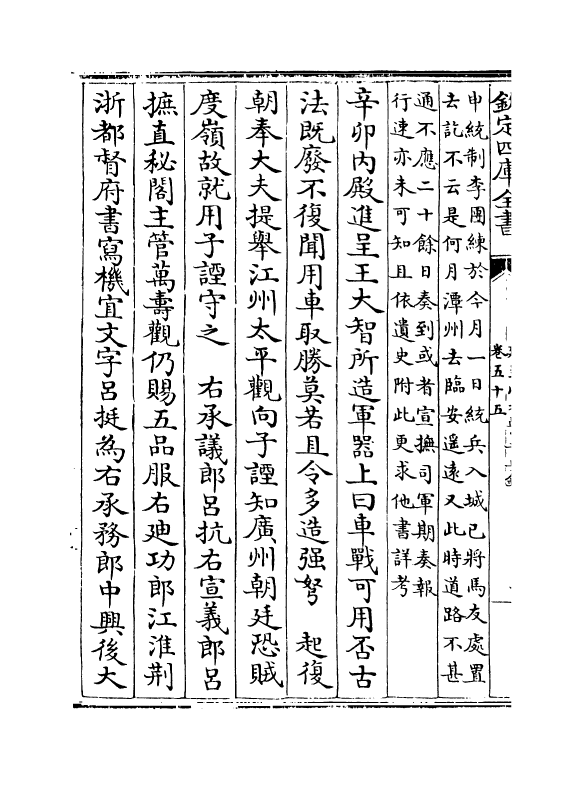 欽定四庫全書
卷五十五
申統制李團練於今月一日統兵入城已將馬友處置
去訖不云是何月潭州去臨安遥遠又此時道路不甚
通不應二十餘日奏到或者宣撫司軍期奏報
行速亦未可知且依遺史附此更求他書詳考
辛卯内殿進呈王大智所造軍器上曰車戰可用否古
法既廢不復聞用車取勝莫若且令多造强弩　起復
朝奉大夫提舉江州太平觀向子諲知廣州朝廷恐賊
度嶺故就用子諲守之　右承議郎吕抗右宣義郎吕
摭直秘閣主管萬壽觀仍賜五品服右廸功郎江淮荆
浙都督府書寫機宜文字吕挺為右承務郎中興後大